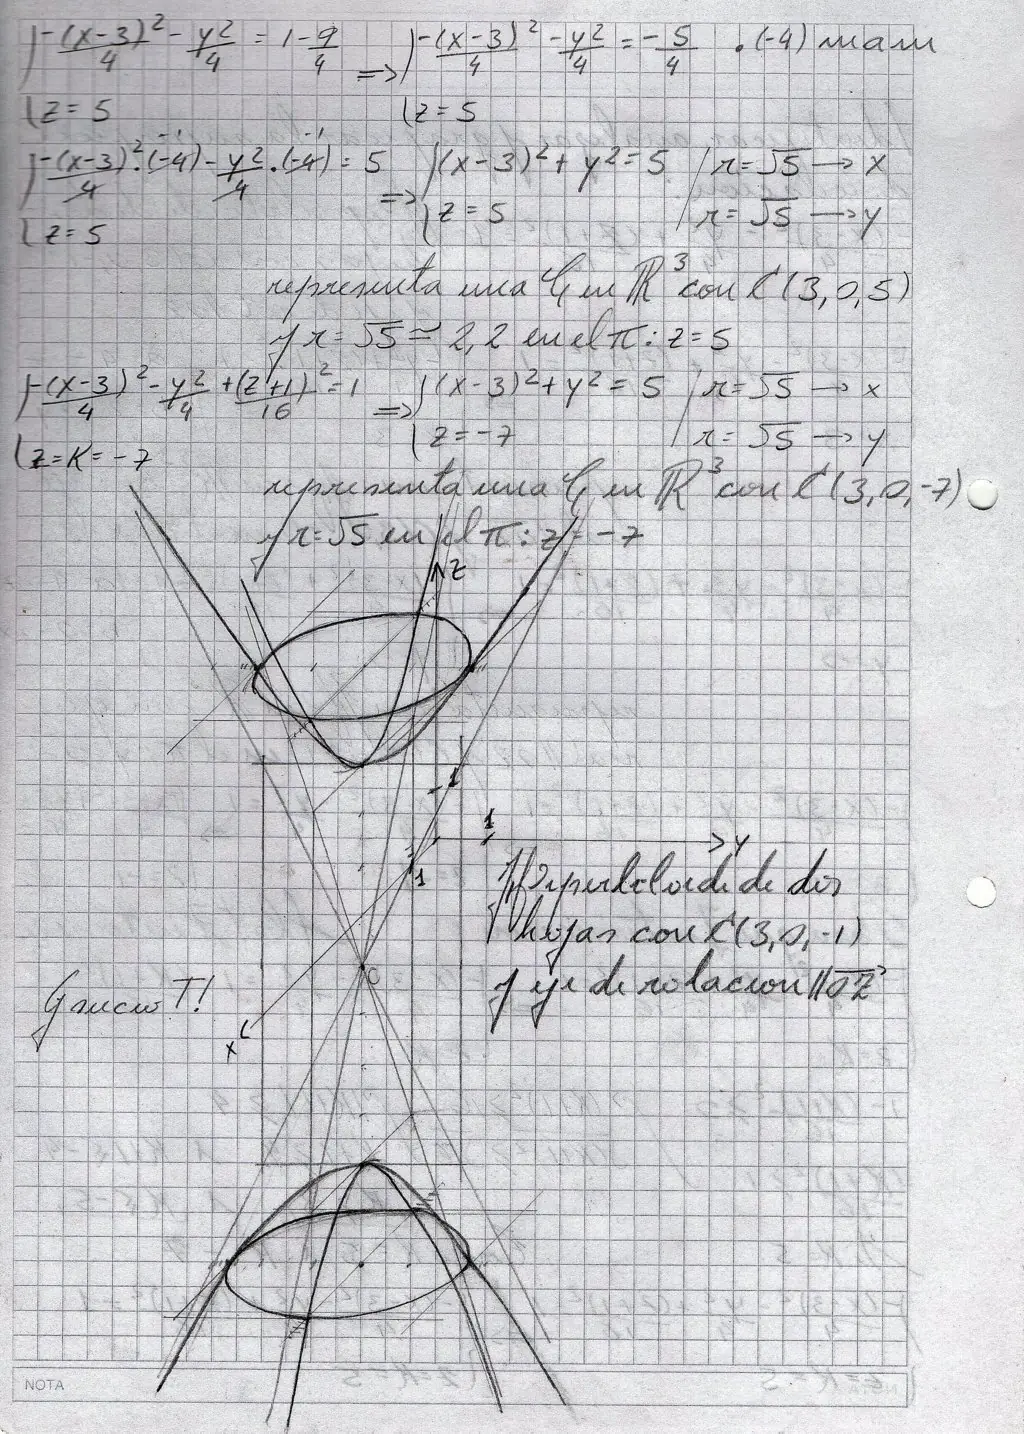 {-(x-3)²/4 - y²/4 = 1 - 9/4 => {-(x-3)²/4 - y²/4 = -5/4 .(-4) mam
{z = 5 {z = 5
{-(x-3)²/4 .(-4) - y²/4 .(-4) = 5 => {(x-3)² + y² = 5 / r = √5 → x
{z = 5 {z = 5 / r = √5 → y
representa una C en ℝ³ con C(3,0,5)
y r = √5 ≃ 2,2 en el π: z = 5
{-(x-3)²/4 - y²/4 + (z+1)²/16 = 1 => {(x-3)² + y² = 5 / r = √5 → x
{z = K = -7 {z = -7 / r = √5 → y
representa una C en ℝ³ con C(3,0,-7)
y r = √5 en el π: z = -7
z
1
1
y
1
Hiperboloide de dos
hojas con C(3,0,-1)
C
y eje de rotacion // OZ
T!
x
NOTA